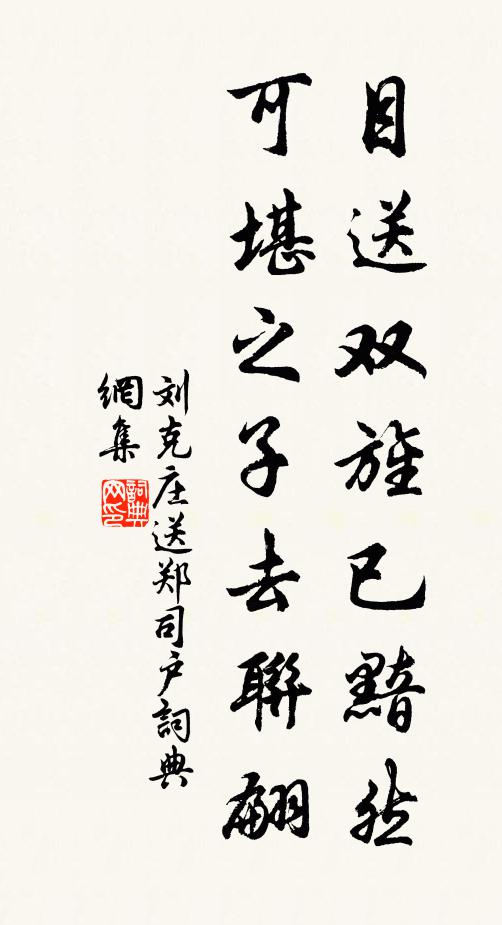 目送双旌已黯然
可堪之子去聯翩
刘克庄送郑司户詞典
網集
詞典网印